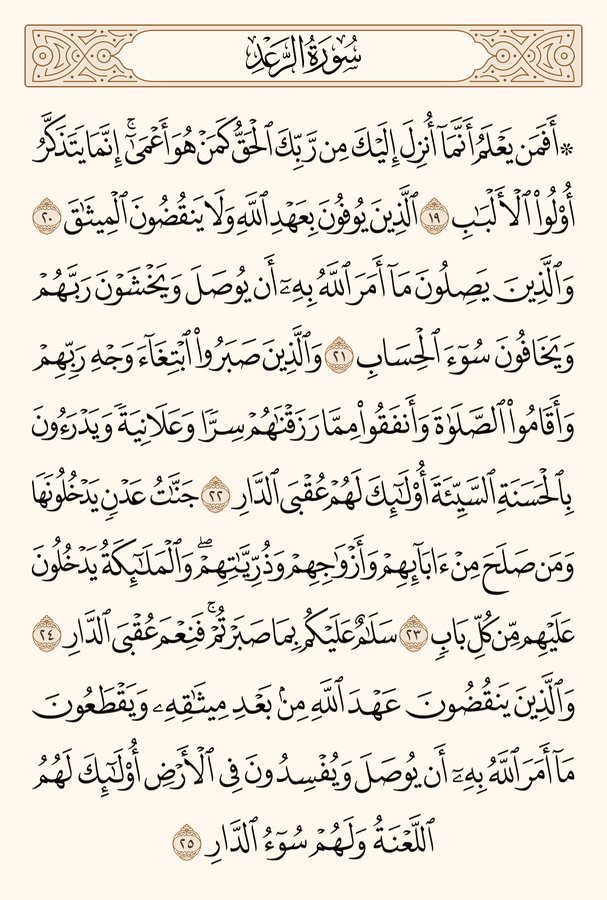 سُورَةُ الرَّعْدِ
۞ أَفَمَن يَعْلَمُ أَنَّمَآ أُنزِلَ إِلَيْكَ مِن رَّبِّكَ ٱلْحَقُّ كَمَنْ هُوَ أَعْمَىٰٓۚ إِنَّمَا يَتَذَكَّرُ
أُو۟لُوا۟ ٱلْأَلْبَـٰبِ ١٩ ٱلَّذِينَ يُوفُونَ بِعَهْدِ ٱللَّهِ وَلَا يَنقُضُونَ ٱلْمِيثَـٰقَ ٢٠
وَٱلَّذِينَ يَصِلُونَ مَآ أَمَرَ ٱللَّهُ بِهِۦٓ أَن يُوصَلَ وَيَخْشَوْنَ رَبَّهُمْ
وَيَخَافُونَ سُوٓءَ ٱلْحِسَابِ ٢١ وَٱلَّذِينَ صَبَرُوا۟ ٱبْتِغَآءَ وَجْهِ رَبِّهِمْ
وَأَقَامُوا۟ ٱلصَّلَوٰةَ وَأَنفَقُوا۟ مِمَّا رَزَقْنَـٰهُمْ سِرًّا وَعَلَانِيَةً وَيَدْرَءُونَ
بِٱلْحَسَنَةِ ٱلسَّيِّئَةَ أُو۟لَـٰٓئِكَ لَهُمْ عُقْبَى ٱلدَّارِ ٢٢ جَنَّـٰتُ عَدْنٍ يَدْخُلُونَهَا
وَمَن صَلَحَ مِنْ ءَابَآئِهِمْ وَأَزْوَٰجِهِمْ وَذُرِّيَّـٰتِهِمْۖ وَٱلْمَلَـٰٓئِكَةُ يَدْخُلُونَ
عَلَيْهِم مِّن كُلِّ بَابٍ ٢٣ سَلَـٰمٌ عَلَيْكُم بِمَا صَبَرْتُمْۚ فَنِعْمَ عُقْبَى ٱلدَّارِ ٢٤
وَٱلَّذِينَ يَنقُضُونَ عَهْدَ ٱللَّهِ مِنۢ بَعْدِ مِيثَـٰقِهِۦ وَيَقْطَعُونَ
مَآ أَمَرَ ٱللَّهُ بِهِۦٓ أَن يُوصَلَ وَيُفْسِدُونَ فِى ٱلْأَرْضِ أُو۟لَـٰٓئِكَ لَهُمُ
ٱللَّعْنَةُ وَلَهُمْ سُوٓءُ ٱلدَّارِ ٢٥